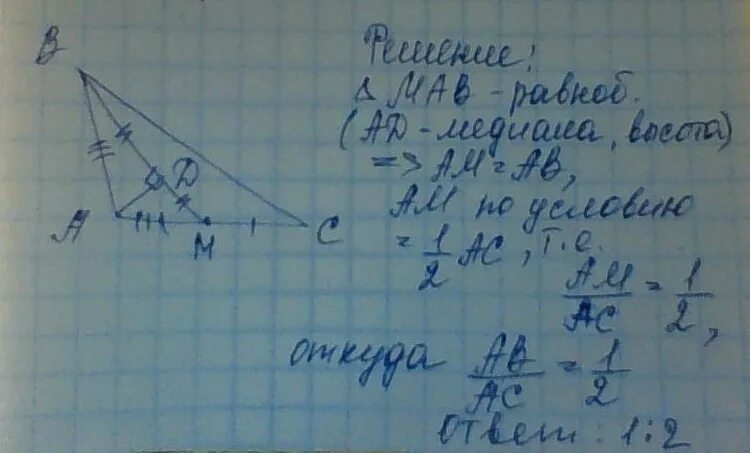 Решение:
Δ MAB - равноб.
(AD - медиана, высота)
=> AM = AB,
AM по условию
= 1/2 AC, т.о.
AM/AC = 1/2,
откуда AB/AC = 1/2
Ответ: 1:2
B
D
A
M
C